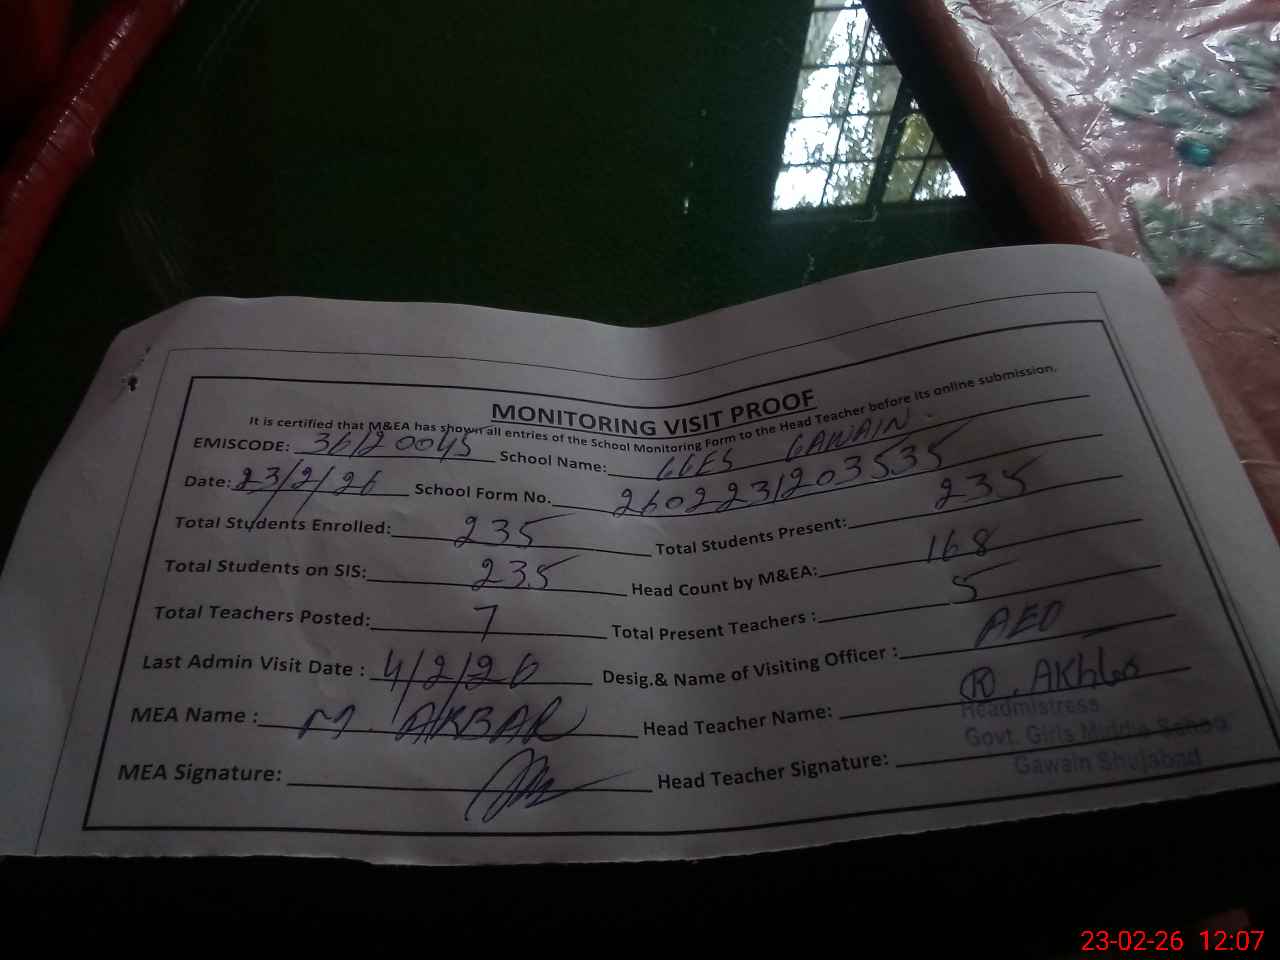 MONITORING VISIT PROOF
It is certified that M&EA has shown all entries of the School Monitoring Form to the Head Teacher before its online submission.
EMISCODE: 36120045 School Name: GGES GAWAIN
Date: 23/2/26 School Form No. 2602231203535
Total Students Enrolled: 235 Total Students Present: 235
Total Students on SIS: 235 Head Count by M&EA: 168
Total Teachers Posted: 7 Total Present Teachers : 5
Last Admin Visit Date : 4/2/26 Desig.& Name of Visiting Officer : AEO
MEA Name : M. AKBAR Head Teacher Name:
Headmistress
Govt. Girls Middle School
Gawain Shujabad
MEA Signature: Head Teacher Signature:
23-02-26 12:07